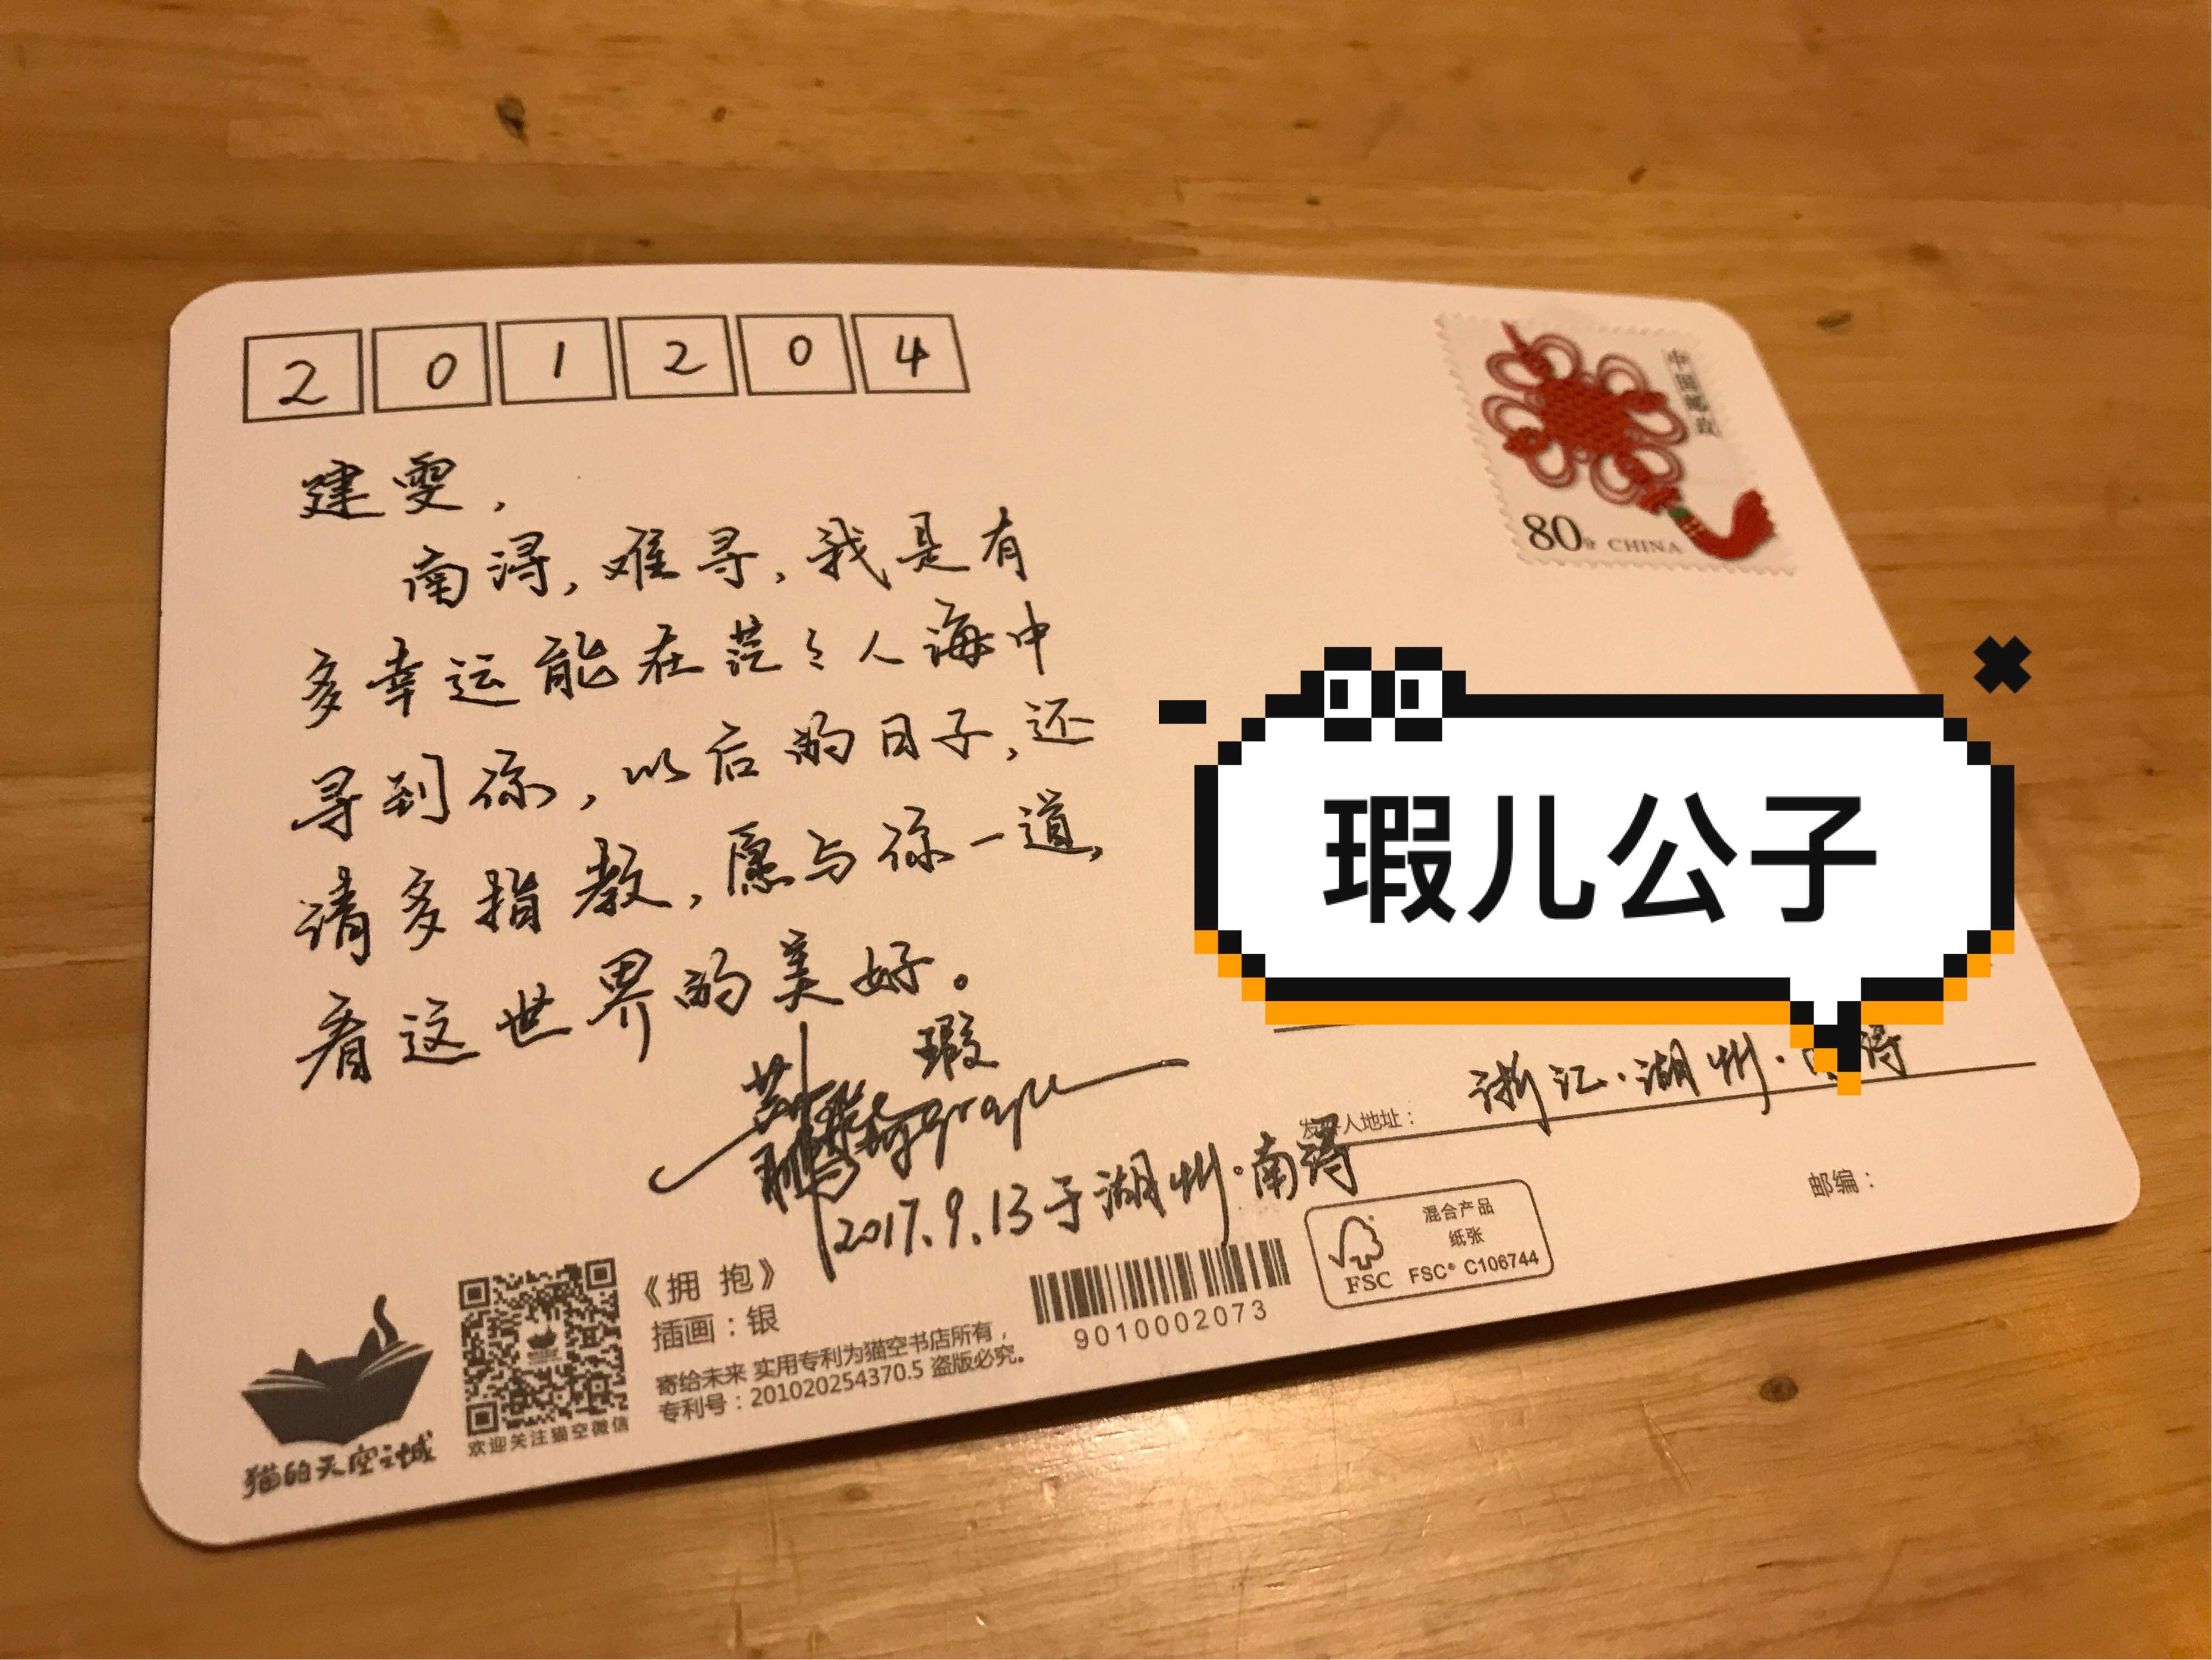 2 0 1 2 0 4
中国邮政
80分 CHINA
建雯,
南浔,难寻,我是有
多幸运能在茫々人海中
寻到你,以后的日子,还
请多指教,愿与你一道,
看这世界的美好。
瑕
2017.9.13于湖州·南浔
瑕儿公子
浙江·湖州·南浔
发件人地址:
邮编:
混合产品
纸张
FSC FSC® C106744
9010002073
《拥 抱》
插画:银
寄给未来 实用专利为猫空书店所有,
专利号:201020254370.5 盗版必究。
欢迎关注猫空微信
猫的天空之城